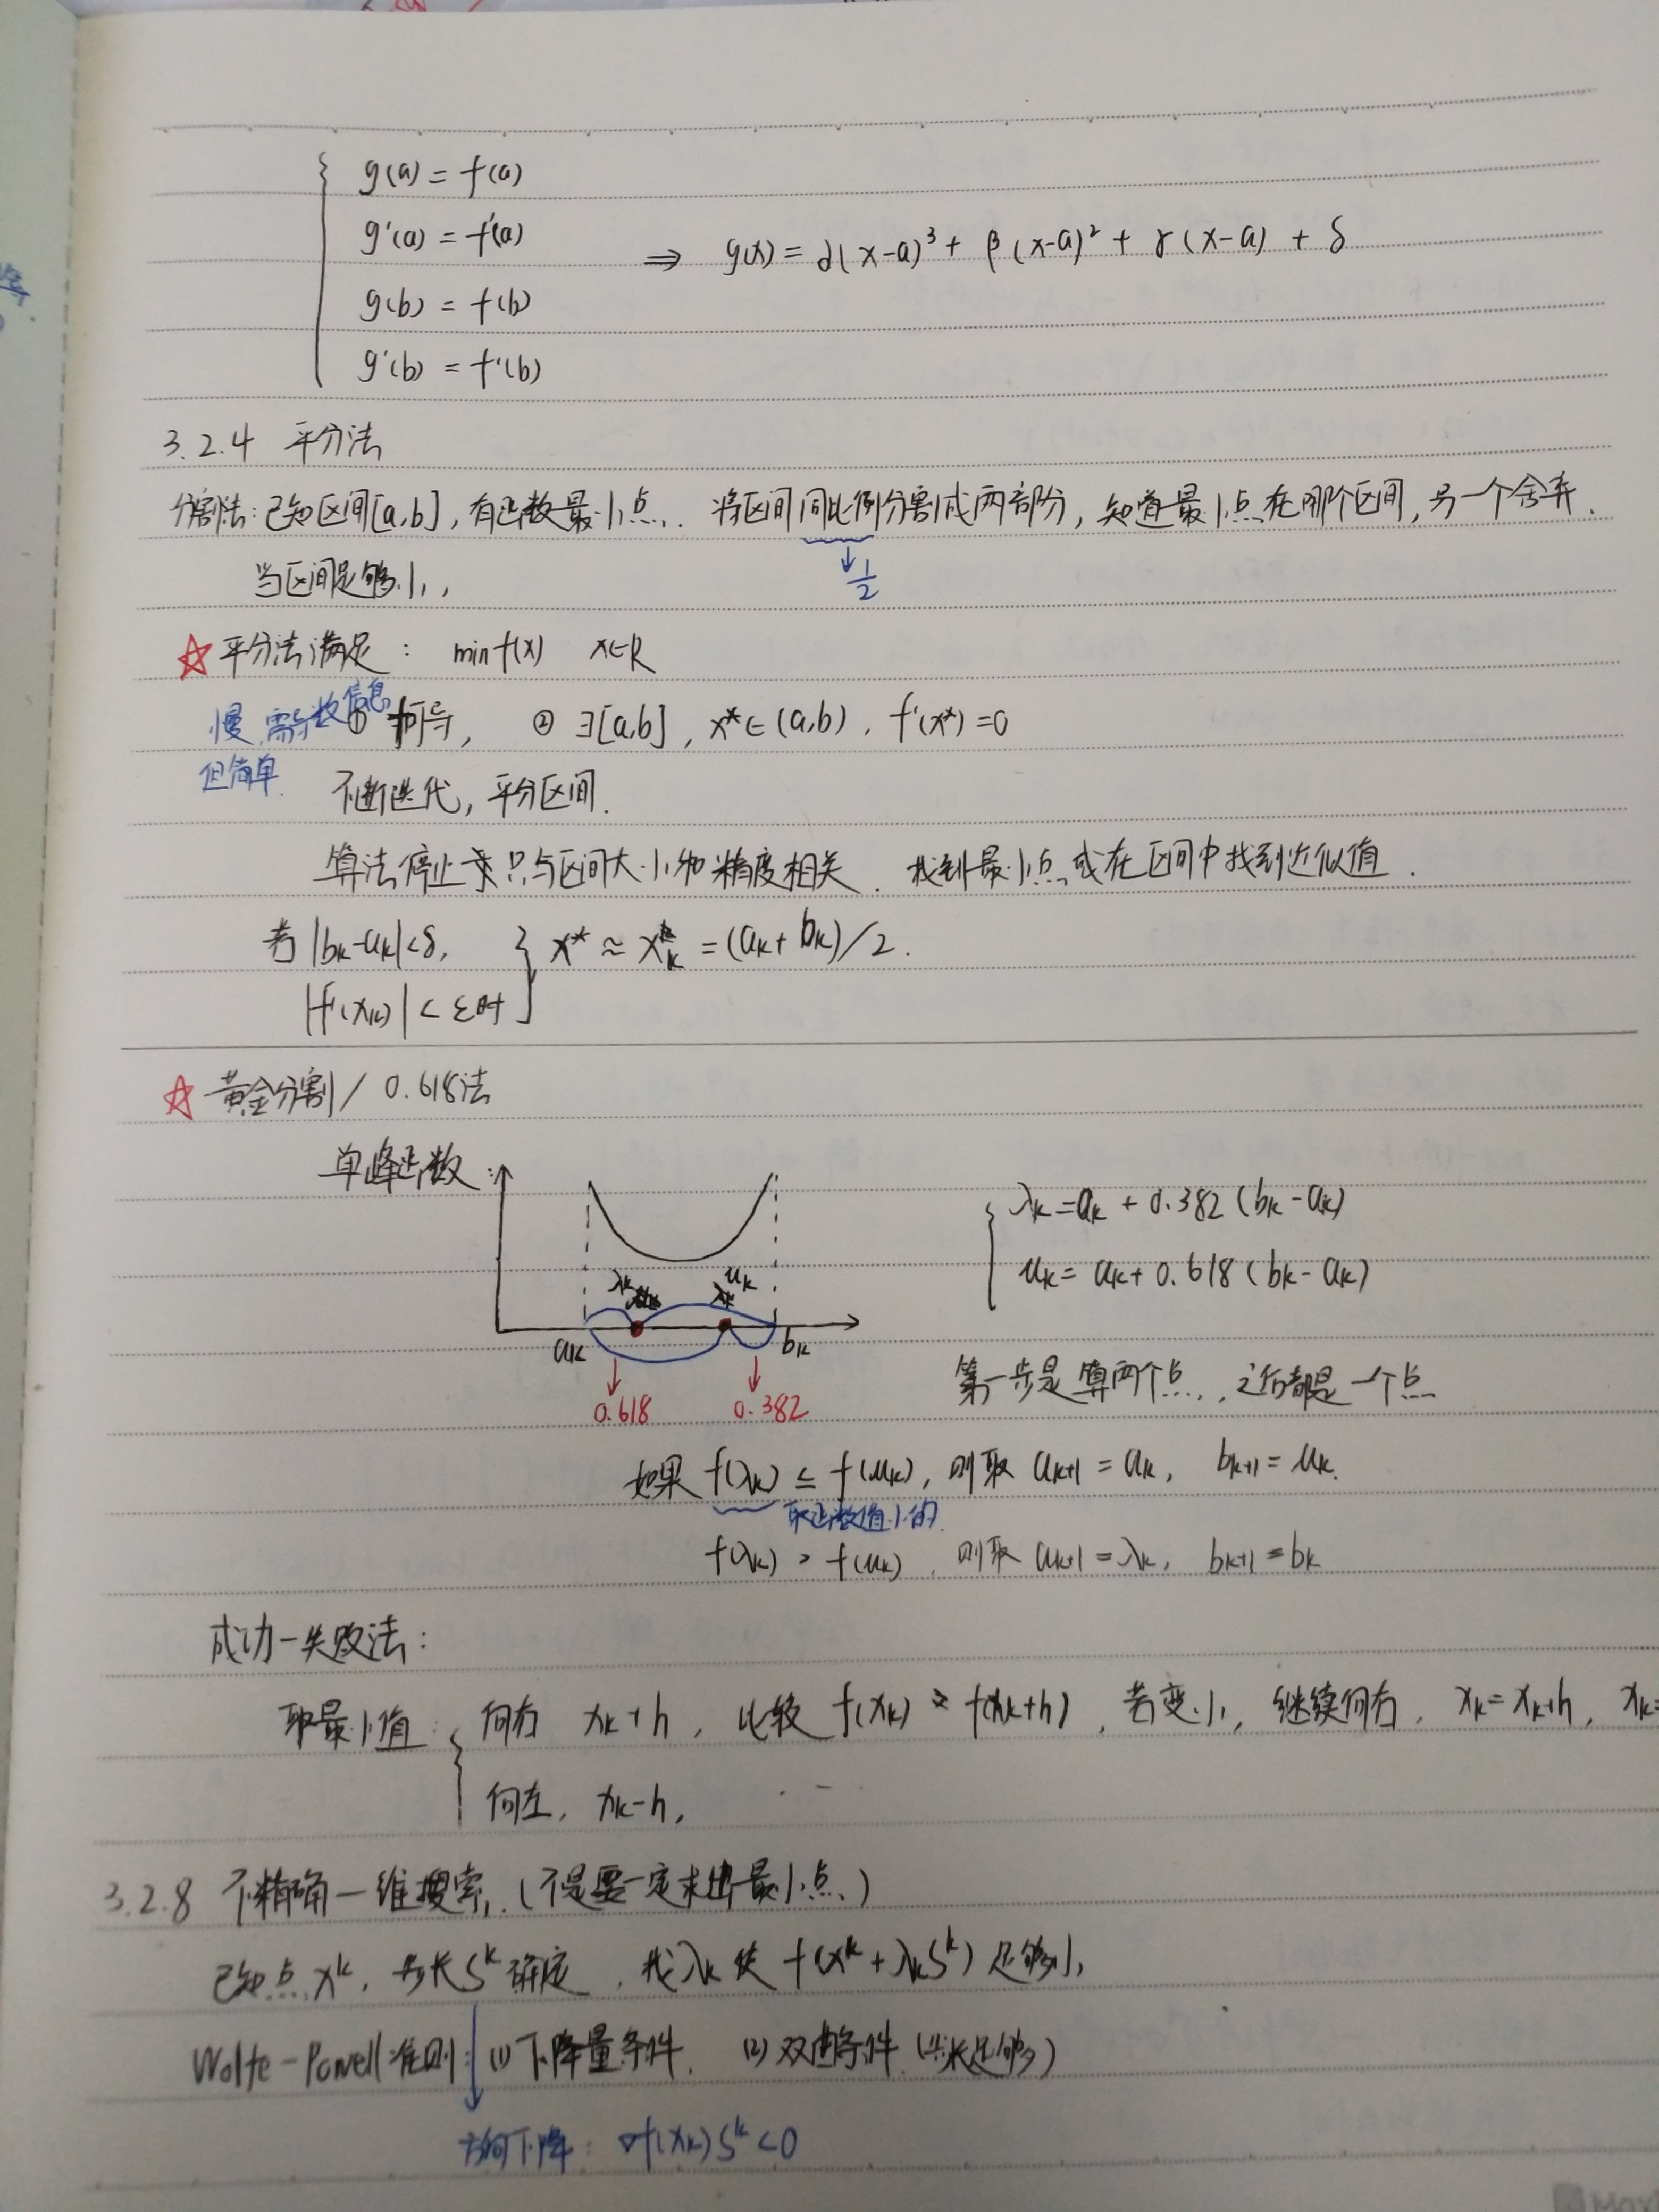 g(a) = f(a)
g'(a) = f'(a)
⇒ g(x) = α(x-a)³ + β(x-a)² + γ(x-a) + δ
g(b) = f(b)
g'(b) = f'(b)
3.2.4 平分法
分割法:已知区间[a,b],有函数最小点. 将区间同比例分割成两部分,知道最小点在哪个区间,另一个舍弃.
↓ 1/2
当区间足够小,
☆平分法满足: min f(x) x∈R
慢,需导数信息
① f可导, ② ∃[a,b], x*∈(a,b), f'(x*)=0
但简单.
不断迭代,平分区间.
算法停止 只与区间大小和精度相关. 找到最小点或在区间中找到近似值.
若|bk-ak|<δ, x* ≈ xk = (ak+bk)/2.
|f'(xk)| < ε时
☆黄金分割/0.618法
单峰函数:
λk = ak + 0.382(bk-ak)
uk = ak + 0.618(bk-ak)
λk uk
ak bk
0.618 0.382
第一步是算两个点,之后都是一个点
如果 f(λk) ≤ f(uk), 则取 ak+1 = ak, bk+1 = uk.
取函数值小的.
f(λk) > f(uk), 则取 ak+1 = λk, bk+1 = bk
成功-失败法:
取最小值: 向右 xk+h, 比较 f(xk) f(xk+h), 若变小, 继续向右, xk=xk+h, xk=
向左, xk-h,
3.2.8 不精确一维搜索,(不是要一定求出最小点)
已知点xᵏ, 步长Sᵏ确定,找λk使 f(xᵏ+λkSᵏ)足够小,
Wolfe-Powell准则: (1)下降量条件. (2)双曲条件(步长足够)
方向下降: ∇f(xk)Sᵏ<0